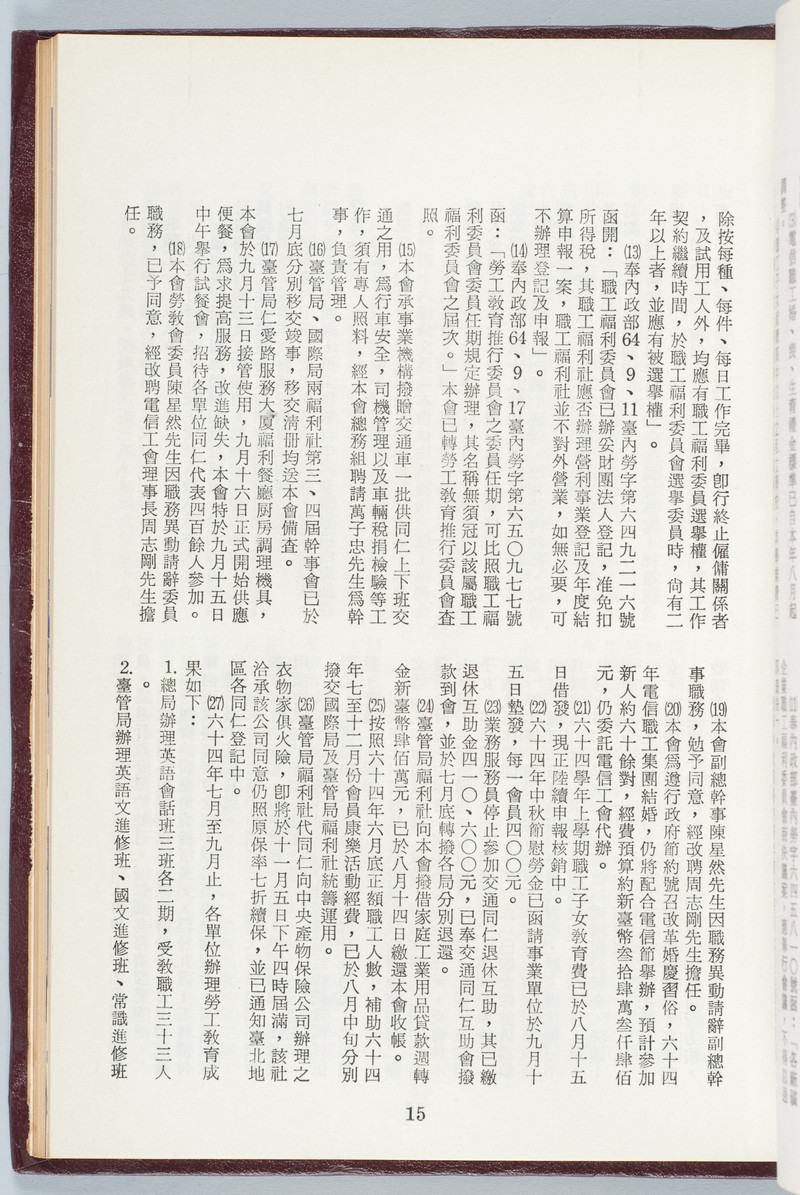 除按每種、每件、每日工作完畢，卽行終止僱傭關係者
，及試用工人外，均應有職工福利委員選擧權，其工作
契約繼續時間，於職工福利委員會選擧委員時，尙有二
年以上者，並應有被選擧權」。
⒀奉內政部64、9、11臺內勞字第六四九二一六號
函開：「職工福利委員會已辦妥財團法人登記，准免扣
所得稅，其職工福利社應否辦理營利事業登記及年度結
算申報一案，職工福利社並不對外營業，如無必要，可
不辦理登記及申報」。
⒁奉內政部64、9、17臺內勞字第六五〇九七七號
函：「勞工敎育推行委員會之委員任期，可比照職工福
利委員會委員任期規定辦理，其名稱無須冠以該屬職工
福利委員會之屆次。」本會已轉勞工敎育推行委員會查
照。
⒂本會承事業機構撥贈交通車一批供同仁上下班交
通之用，爲行車安全，司機管理以及車輛稅捐檢驗等工
作，須有專人照料，經本會總務組聘請萬子忠先生爲幹
事，負責管理。
⒃臺管局、國際局兩福利社第三、四屆幹事會已於
七月底分別移交竣事，移交淸册均送本會備查。
⒄臺管局仁愛路服務大厦福利餐廳厨房調理機具，
本會於九月十三日接管使用，九月十六日正式開始供應
便餐，爲求提高服務，改進缺失，本會特於九月十五日
中午擧行試餐會，招待各單位同仁代表四百餘人參加。
⒅本會勞敎會委員陳星然先生因職務異動請辭委員
職務，已予同意，經改聘電信工會理事長周志剛先生擔
任。
⒆本會副總幹事陳星然先生因職務異動請辭副總幹
事職務，勉予同意，經改聘周志剛先生擔任。
⒇本會爲遵行政府節約號召改革婚慶習俗，六十四
年電信職工集團結婚，仍將配合電信節擧辦，預計參加
新人約六十餘對，經費預算約新臺幣叁拾肆萬叁仟肆佰
元，仍委託電信工會代辦。
(21)六十四學年上學期職工子女敎育費已於八月十五
日借發，現正陸續申報核銷中。
(22)六十四年中秋節慰勞金已函請事業單位於九月十
五日墊發，每一會員四〇〇元。
(23)業務服務員停止參加交通同仁退休互助，其已繳
退休互助金四一〇、六〇〇元，已奉交通同仁互助會撥
款到會，並於七月底轉撥各局分別退還。
(24)臺管局福利社向本會撥借家庭工業用品貸款週轉
金新臺幣肆佰萬元，已於八月十四日繳還本會收帳。
(25)按照六十四年六月底正額職工人數，補助六十四
年七至十二月份會員康樂活動經費，已於八月中旬分別
撥交國際局及臺管局福利社統籌運用。
(26)臺管局福利社代同仁向中央產物保險公司辦理之
衣物家俱火險，卽將於十一月五日下午四時屆滿，該社
洽承該公司同意仍照原保率七折續保，並已通知臺北地
區各同仁登記中。
(27)六十四年七月至九月止，各單位辦理勞工敎育成
果如下：
1.總局辦理英語會話班三班各二期，受敎職工三十三人
。
2.臺管局辦理英語文進修班、國文進修班、常識進修班
15